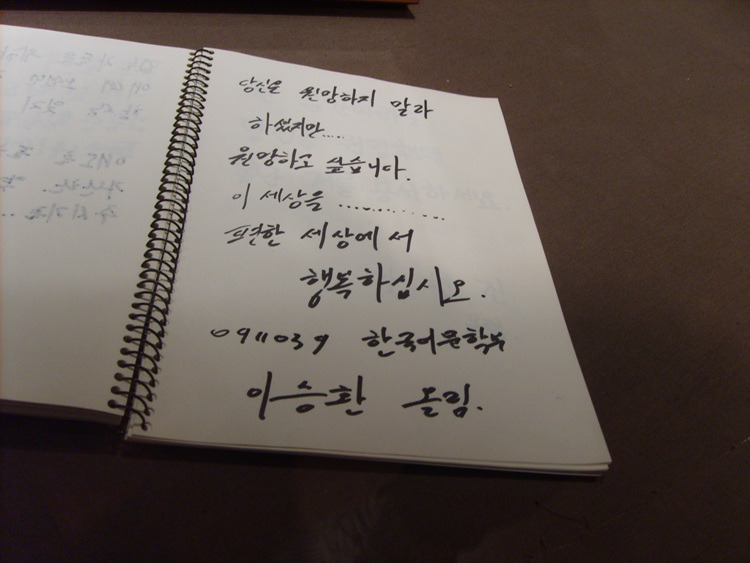 당신은 원망하지 말라
하셨지만.....
원망하고 싶습니다.
이 세상을 ............
편한 세상에서
행복하십시오.
0911039 한국어문학부
이승환 올림.